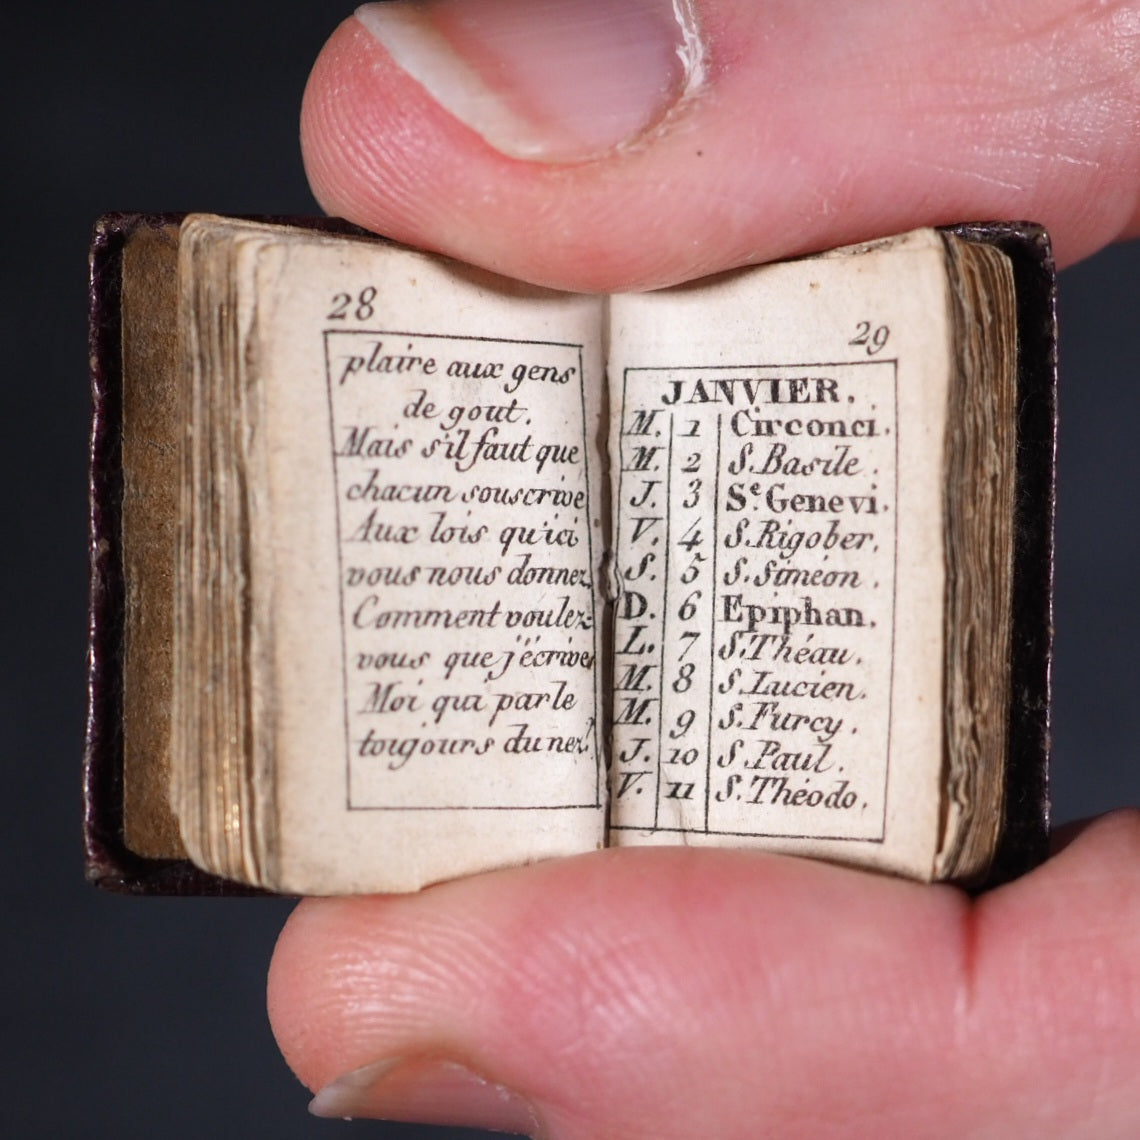 28
plaire aux gens
de gout.
Mais s'il faut que
chacun souscrive
Aux lois qu'ici
vous nous donnez,
Comment voulez-
vous que j'écrive
Moi qui parle
toujours du nez?
29
JANVIER.
M. 1 Circonci.
M. 2 S. Basile.
J. 3 Sᵉ. Genevi.
V. 4 S. Rigober.
S. 5 S. Siméon.
D. 6 Epiphan.
L. 7 S. Théau.
M. 8 S. Lucien.
M. 9 S. Furcy.
J. 10 S. Paul.
V. 11 S. Théodo.